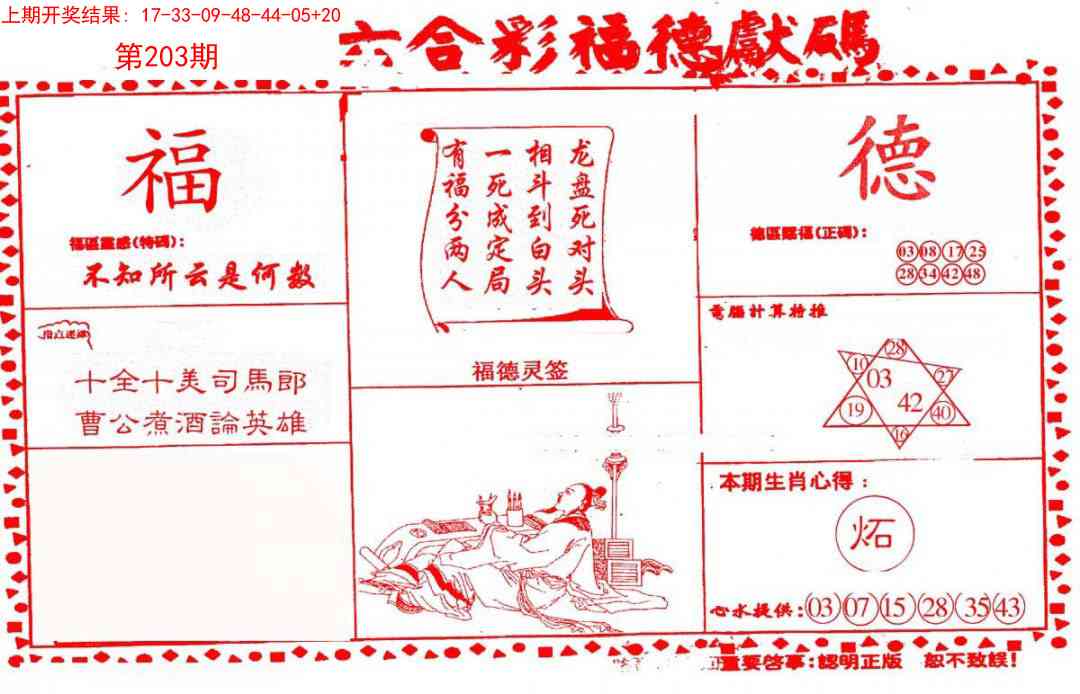 上期开奖结果：17-33-09-48-44-05+20
第203期
六合彩福德獻碼
福
福區靈感(特碼)：
不知所云是何数
十全十美司馬郎
曹公煮酒論英雄
龙盘死对头
相斗到白头
一死成定局
有福分两人
福德灵签
德
德區賜福(正碼)：
03 08 17 25
28 34 42 48
電腦計算特推
28
10 03 27
19 42 40
16
本期生肖心得：
炻
心水提供：03 07 15 28 35 43
重要啓事：認明正版 恕不致誤！